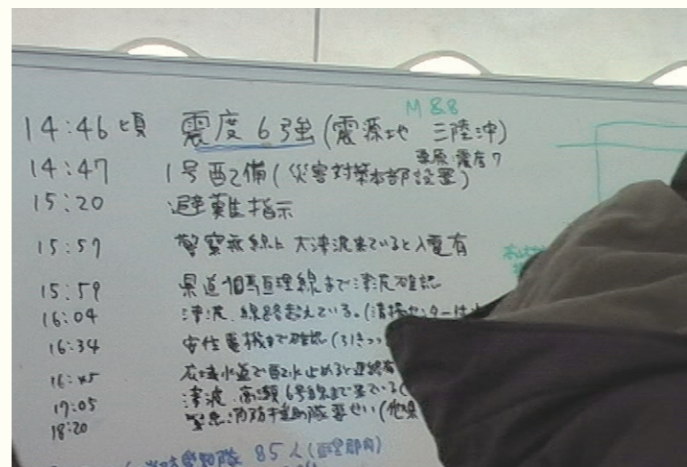 M 8.8
14:46 頃 震度 6強 (震源地 三陸沖)
栗原 震度7
14:47 1号配備 (災害対策本部設置)
15:20 避難指示
15:57 警察無線より 大津波来ていると入電有
15:59 県道相馬亘理線まで津波確認
16:04 津波、線路超えている。(清掃センターは
16:34 安住電機まで確認 (引き
16:45 広域水道で配水止めると連絡有
17:05 津波、高瀬6号線まで来ている(
18:20 緊急消防援助隊要せい (他県
85人 (亘理郡内)